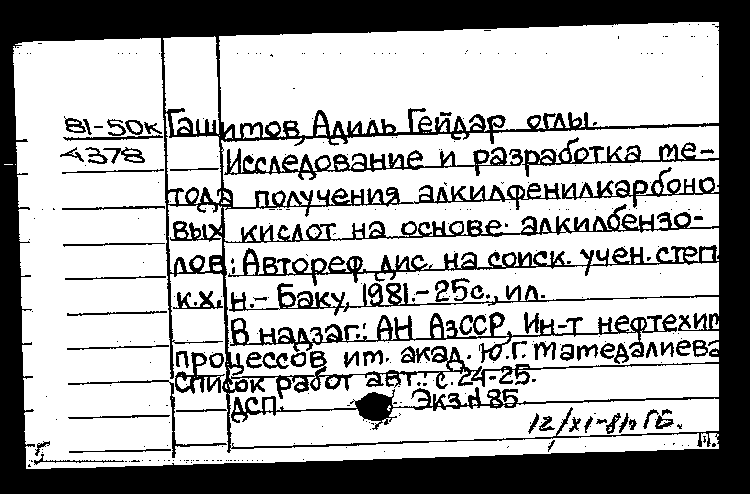 81-50к Гашитов, Адиль Гейдар оглы.
4378 Исследование и разработка ме-
тода получения алкилфенилкарбоно
вых кислот на основе алкилбензо-
лов: Автореф. дис. на соиск. учен. степ.
к.х.н. - Баку, 1981. - 25с., ил.
В надзаг.: АН АзССР, Ин-т нефтехим
процессов им. акад. Ю.Г. Мамедалиева
Список работ авт.: с. 24-25.
ДСП. Экз. № 85.
12/XI-81г ГБ.